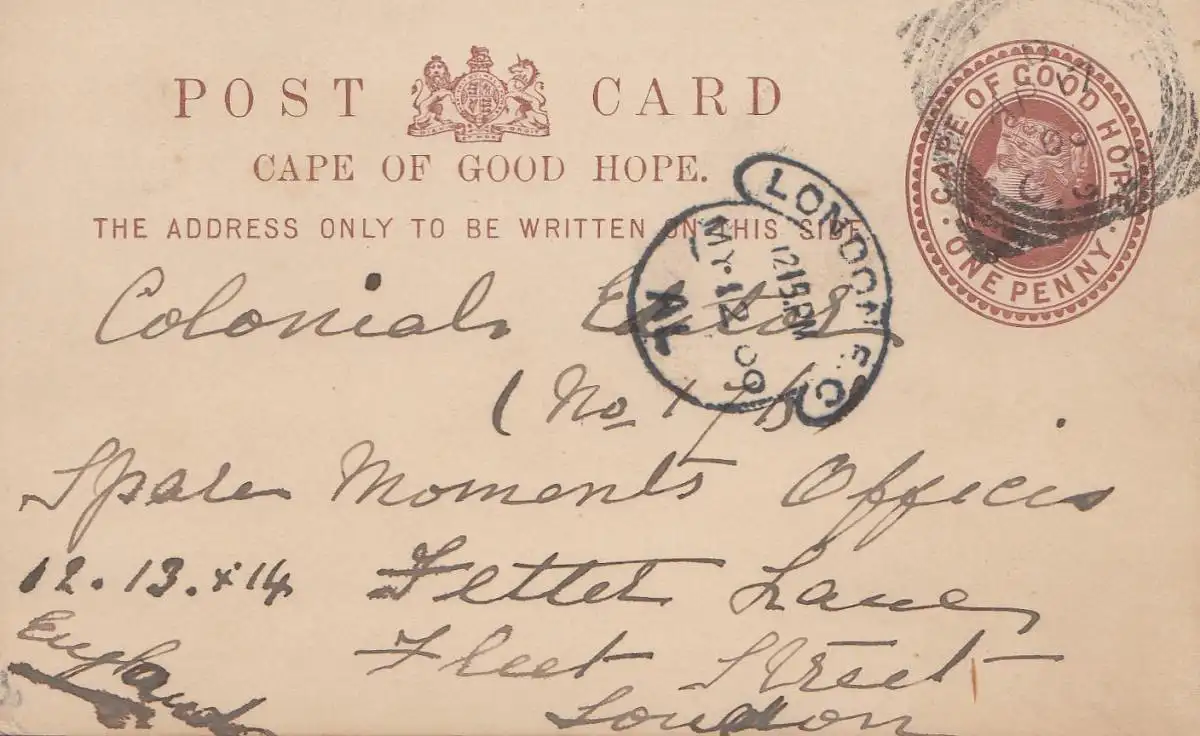 POST CARD
CAPE OF GOOD HOPE.
THE ADDRESS ONLY TO BE WRITTEN ON THIS SIDE
CAPE OF GOOD HOPE
ONE PENNY
LONDON E.C
12 15 PM
MY 21 00
Colonial Editor
(No
Spare Moments Offices
12. 13. + 14 Fetter Lane
Fleet Street
London
England